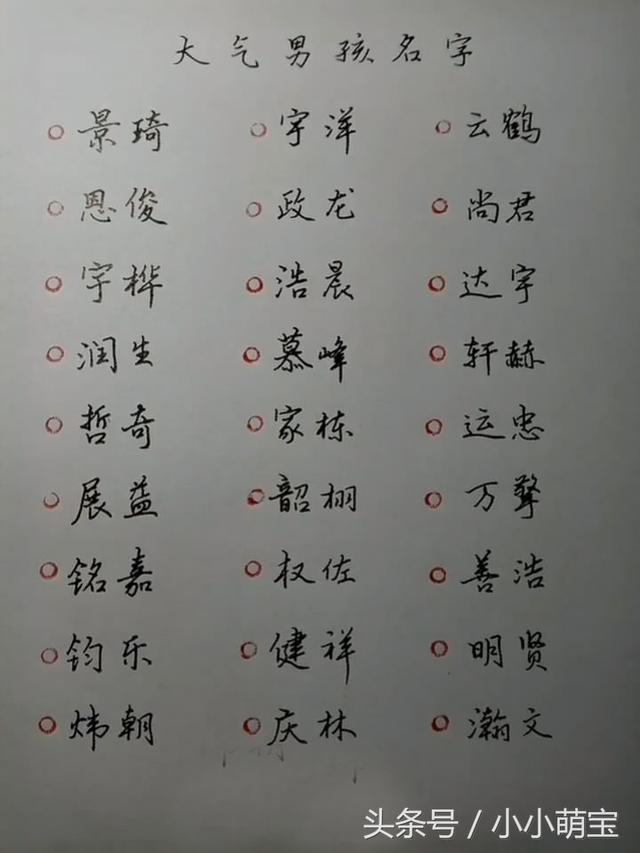 大气男孩名字
景琦 宇洋 云鹤
恩俊 政龙 尚君
宇桦 浩晨 达宇
润生 慕峰 轩赫
哲奇 家栋 运忠
展益 韶栩 万擎
铭嘉 权佐 善浩
钧乐 健祥 明贤
炜朝 庆林 瀚文
头条号 / 小小萌宝